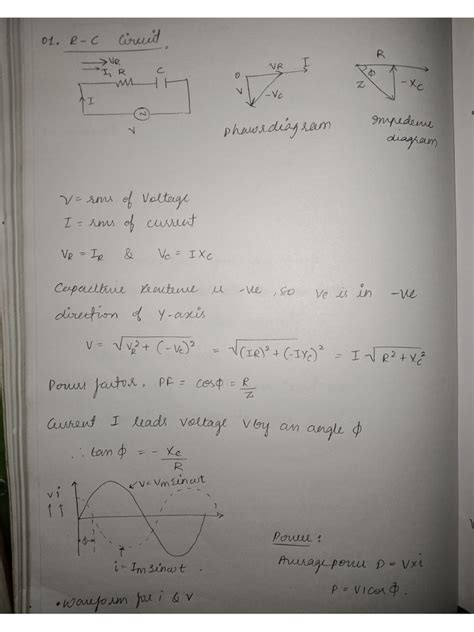 01. R-C Circuit.
→ VR
→ I, R C
I
V
O VR I
V
-Vc
phasordiagram
R
ϕ
Z -Xc
Impedence
diagram
V = rms of Voltage
I = rms of current
VR = IR & Vc = IXc
Capacitive reactence is -ve, so Vc is in -ve
direction of Y-axis
V = √VR² + (-Vc)² = √(IR)² + (-IXc)² = I √R² + Xc²
Power factor, PF = cosϕ = R/Z
Current I leads voltage V by an angle ϕ
∴ tan ϕ = - Xc/R
v i
v = Vm sinωt
ϕ
i = Im sinωt.
• Waveform for i & v
Power :
Average power P = V x i
P = VI cos ϕ.